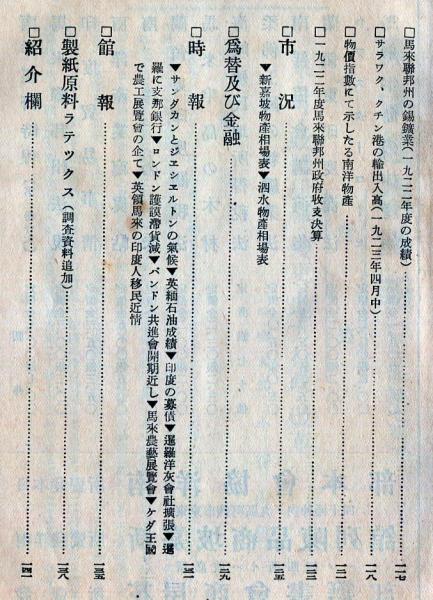 □馬來聯邦州の錫鑛業(一九二二年度の成績)……一一七
□サラワク、クチン港の輸出入高(一九二三年四月中)……一一八
□物價指數にて示したる南洋物產……一二二
□一九二二年度馬來聯邦州政府收支決算……一二三
□市況……一二五
▼新嘉坡物產相場表▼泗水物產相場表
□爲替及び金融……一二九
□時報……一三一
▼サンダカンとジエシエルトンの氣候▼英緬石油成績▼印度の募債▼暹羅洋灰會社擴張▼暹
羅に支那銀行▼ロンドン護謨滯貨減▼バンドン共進會開期近し▼馬來農藝展覽會▼ケダ王國
で農工展覽會の企て▼英領馬來の印度人移民近情
□館報……一三五
□製紙原料ラテックス(調査資料追加)……一三八
□紹介欄……一四一